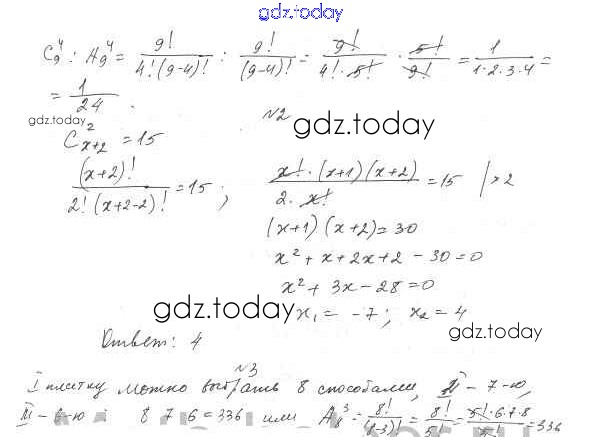 gdz.today
C₉⁴ : A₉⁴ = 9!/(4!·(9-4)!) : 9!/(9-4)! = 9!/(4!·5!) · 5!/9! = 1/(1·2·3·4) =
= 1/24.
gdz.today
№2
gdz.today
C²ₓ₊₂ = 15
(x+2)!/(2!(x+2-2)!) = 15; x!·(x+1)(x+2)/(2·x!) = 15 |×2
(x+1)(x+2)=30
x²+x+2x+2-30=0
x²+3x-28=0
gdz.today
x₁=-7; x₂=4
gdz.today
Ответ: 4
№3
I плитку можно выбрать 8 способами, II - 7-ю,
III - 6-ю : 8 7 6=336 или A₈³ = 8!/(8-3)! = 8!/5! = 5!·6·7·8/5! = 336